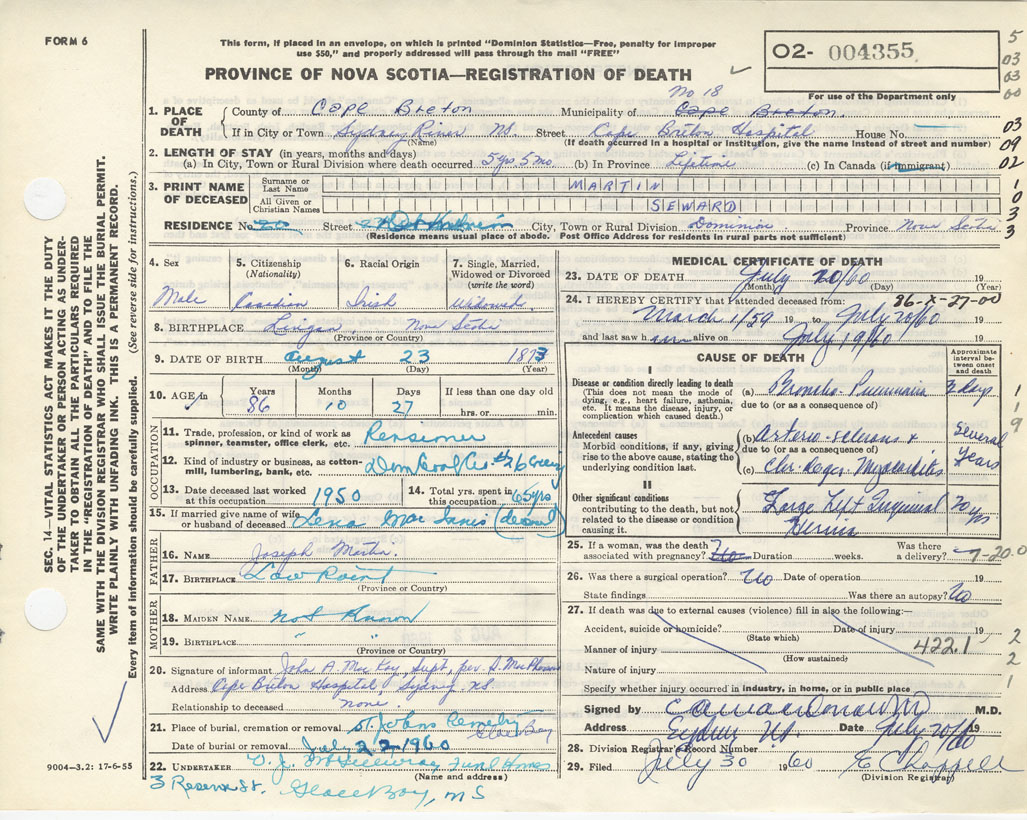 FORM 6
This form, if placed in an envelope, on which is printed "Dominion Statistics—Free, penalty for improper
use $50," and properly addressed will pass through the mail "FREE"
O2- 004355
For use of the Department only
PROVINCE OF NOVA SCOTIA—REGISTRATION OF DEATH
No 18
1. PLACE OF DEATH County of Cape Breton Municipality of Cape Breton.
If in City or Town Sydney River NS. Street Cape Breton Hospital House No.
(Name) (If death occurred in a hospital or institution, give the name instead of street and number)
2. LENGTH OF STAY (in years, months and days)
(a) In City, Town or Rural Division where death occurred 5 yrs 5 mo. (b) In Province Lifetime (c) In Canada (if immigrant)
3. PRINT NAME OF DECEASED Surname or Last Name MARTIN
All Given or Christian Names SEWARD
RESIDENCE No. Street Not Known City, Town or Rural Division Dominion Province Nova Scotia
(Residence means usual place of abode. Post Office Address for residents in rural parts not sufficient)
4. Sex Male
5. Citizenship (Nationality) Canadian
6. Racial Origin Irish
7. Single, Married, Widowed or Divorced (write the word) Widowed
8. BIRTHPLACE Lingan, Nova Scotia
(Province or Country)
9. DATE OF BIRTH August 23 1873
(Month) (Day) (Year)
10. AGE in Years 86 Months 10 Days 27 If less than one day hrs. or min.
OCCUPATION
11. Trade, profession, or kind of work as spinner, teamster, office clerk, etc. Pensioner
12. Kind of industry or business, as cotton-mill, lumbering, bank, etc. Dom Coal Co. #26
13. Date deceased last worked at this occupation 1950
14. Total yrs. spent in this occupation 65 yrs
15. If married give name of wife or husband of deceased Lena Mac Innis (deceased)
FATHER
16. NAME Joseph Martin.
17. BIRTHPLACE Low Point
(Province or Country)
MOTHER
18. MAIDEN NAME not Known
19. BIRTHPLACE " "
(Province or Country)
20. Signature of informant John A. MacKay, Supt, per S. McPherson
Address Cape Breton Hospital, Sydney, NS
Relationship to deceased none.
21. Place of burial, cremation or removal St. Johns Cemetery Glace Bay
Date of burial or removal July 22 1960
22. UNDERTAKER Funl Homes
(Name and address)
3 Reserve St. Glace Bay, NS
9004—3.2: 17-6-55
SEC. 14—VITAL STATISTICS ACT MAKES IT THE DUTY
OF THE UNDERTAKER OR PERSON ACTING AS UNDER-
TAKER TO OBTAIN ALL THE PARTICULARS REQUIRED
IN THE "REGISTRATION OF DEATH" AND TO FILE THE
SAME WITH THE DIVISION REGISTRAR WHO SHALL ISSUE THE BURIAL PERMIT.
WRITE PLAINLY WITH UNFADING INK. THIS IS A PERMANENT RECORD.
Every item of information should be carefully supplied. (See reverse side for instructions.)
MEDICAL CERTIFICATE OF DEATH
23. DATE OF DEATH July 20/60 19
(Month) (Day) (Year)
24. I HEREBY CERTIFY that I attended deceased from: 86-X-27-00
March 1/59 19 to July 20/60 19
and last saw him alive on July 19/60 19
CAUSE OF DEATH
Approximate interval between onset and death
I
Disease or condition directly leading to death
(This does not mean the mode of dying, e.g., heart failure, asthenia, etc. It means the disease, injury, or complication which caused death.)
(a) Broncho-Pneumonia 3 days
due to (or as a consequence of)
Antecedent causes
Morbid conditions, if any, giving rise to the above cause, stating the underlying condition last.
(b) Arterio-sclerosis + Several Years
due to (or as a consequence of)
(c) Chr. Degen. Myocarditis
II
Other significant conditions
contributing to the death, but not related to the disease or condition causing it.
Large Left Inguinal Hernia 20 yrs
25. If a woman, was the death associated with pregnancy? Duration weeks. Was there a delivery?
26. Was there a surgical operation? No Date of operation 19
State findings Was there an autopsy? No
27. If death was due to external causes (violence) fill in also the following:—
Accident, suicide or homicide? Date of injury 19
(State which)
Manner of injury 422.1
(How sustained)
Nature of injury
Specify whether injury occurred in industry, in home, or in public place
Signed by M.D.
Address Sydney N.S. Date July 20/60 19
28. Division Registrar's Record Number
29. Filed July 30 1960 E Chappell
(Division Registrar)
5
03
03
00
03
09
02
1
0
3
3
1
1
9
7-20.0
2
2
1